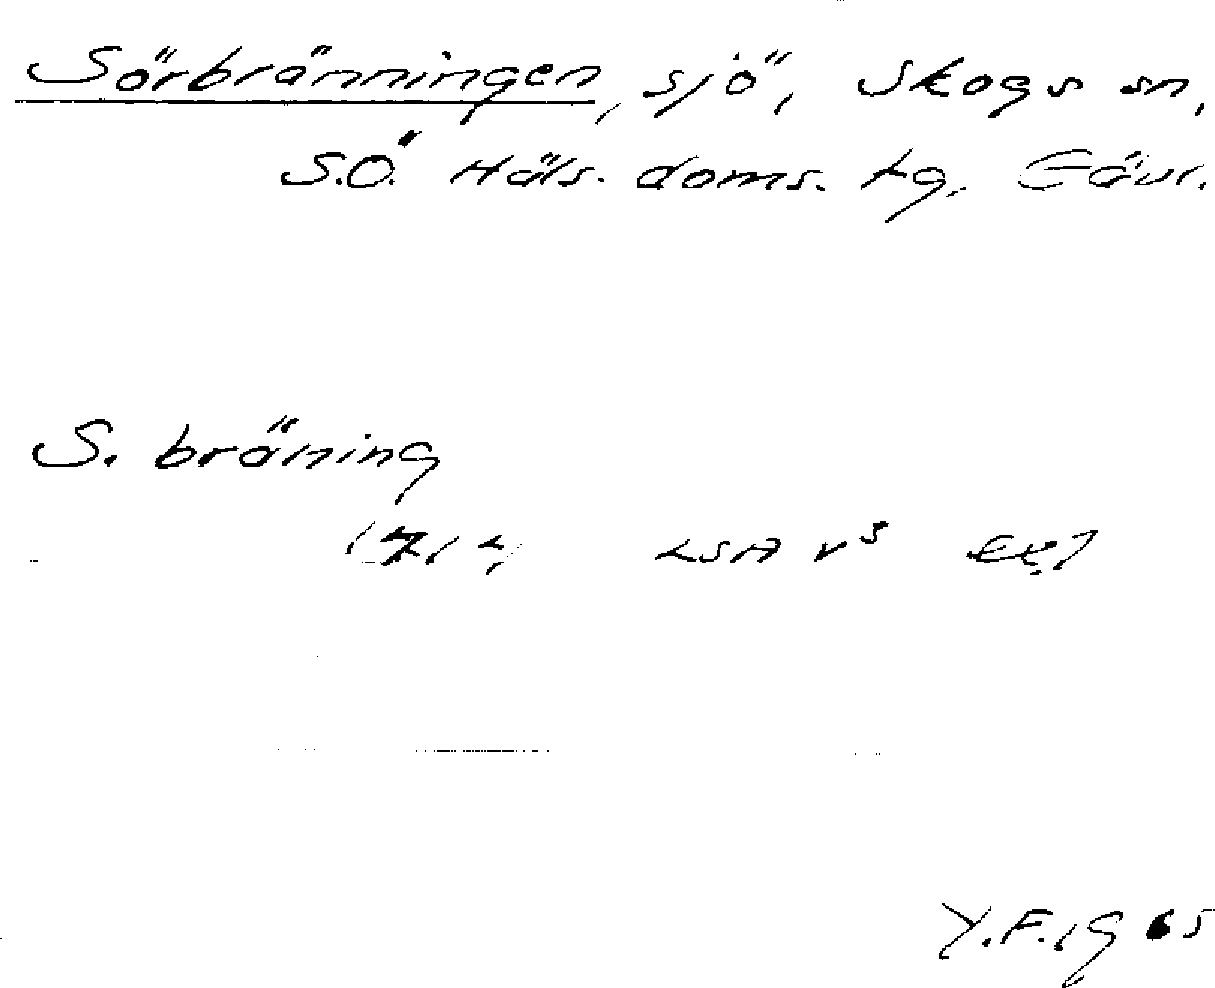 Sörbränningen, sjö, Skogs sn,
S.Ö. Häls. doms. tg, Gävl.
S. bräning
LSA
Y.F. 1965